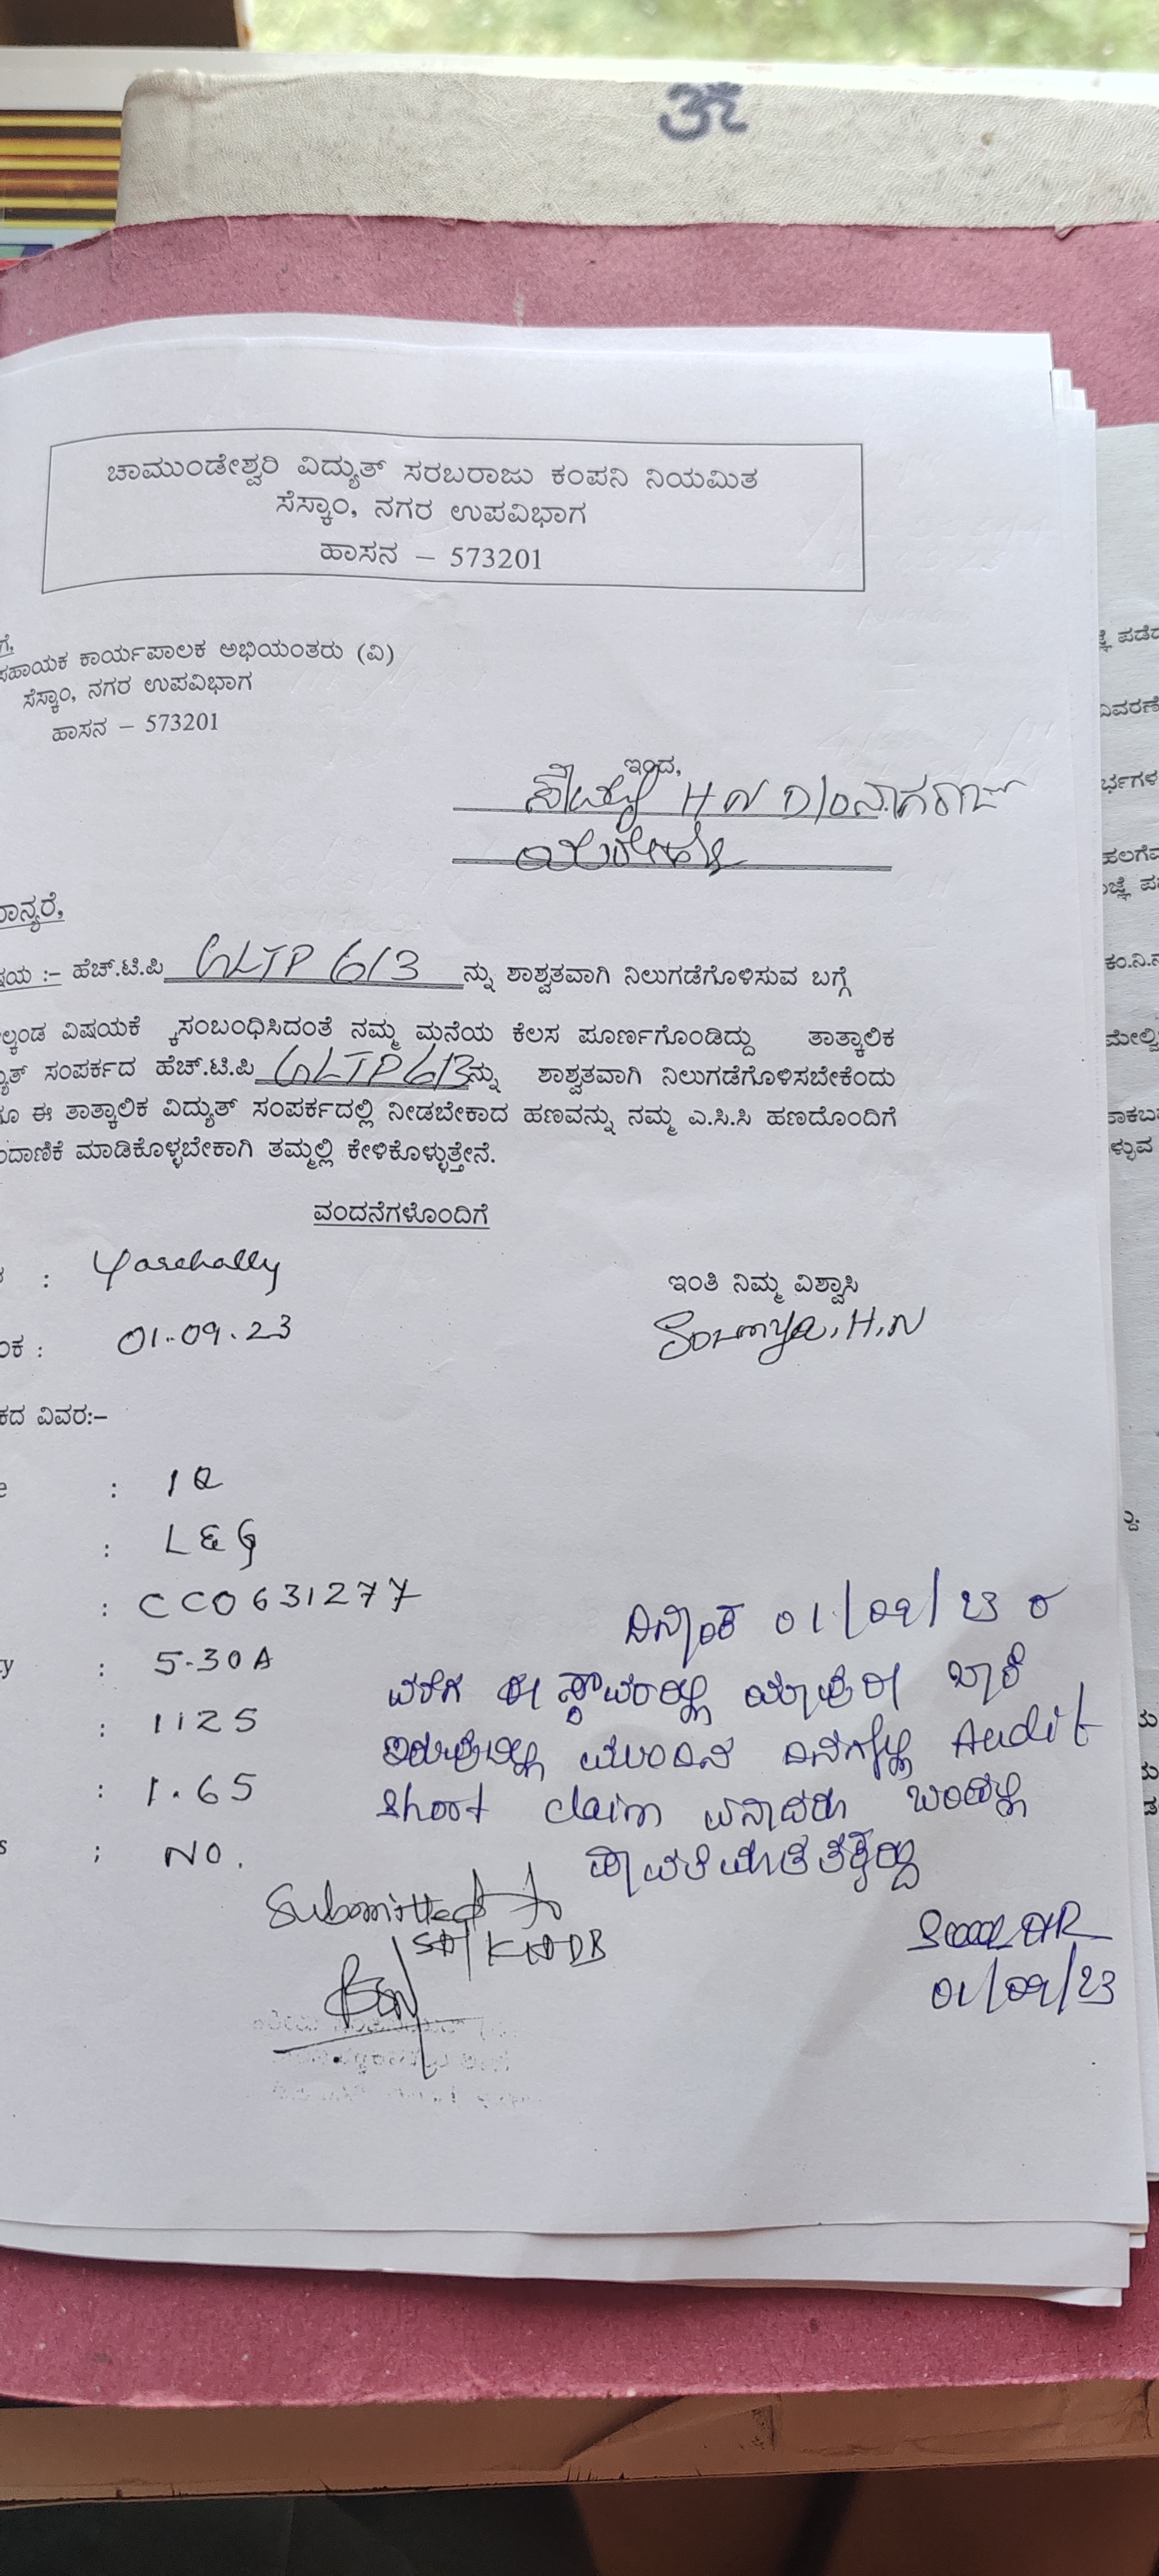 ॐ
ಚಾಮುಂಡೇಶ್ವರಿ ವಿದ್ಯುತ್ ಸರಬರಾಜು ಕಂಪನಿ ನಿಯಮಿತ
ಸೆಸ್ಕಾಂ, ನಗರ ಉಪವಿಭಾಗ
ಹಾಸನ – 573201
ಗೆ,
ಸಹಾಯಕ ಕಾರ್ಯಪಾಲಕ ಅಭಿಯಂತರು (ವಿ)
ಸೆಸ್ಕಾಂ, ನಗರ ಉಪವಿಭಾಗ
ಹಾಸನ – 573201
ಇಂದ,
ಸೌಮ್ಯ H N D/o ನಾಗರಾಜ್
ಮಾನ್ಯರೆ,
ಷಯ :– ಹೆಚ್.ಟಿ.ಪಿ GLTP 613 ನ್ನು ಶಾಶ್ವತವಾಗಿ ನಿಲುಗಡೆಗೊಳಿಸುವ ಬಗ್ಗೆ
ಲ್ಕಂಡ ವಿಷಯಕೆ ಕ್ಕಸಂಬಂಧಿಸಿದಂತೆ ನಮ್ಮ ಮನೆಯ ಕೆಲಸ ಪೂರ್ಣಗೊಂಡಿದ್ದು ತಾತ್ಕಾಲಿಕ
ಯುತ್ ಸಂಪರ್ಕದ ಹೆಚ್.ಟಿ.ಪಿ GLTP 613 ನ್ನು ಶಾಶ್ವತವಾಗಿ ನಿಲುಗಡೆಗೊಳಿಸಬೇಕೆಂದು
ಗೂ ಈ ತಾತ್ಕಾಲಿಕ ವಿದ್ಯುತ್ ಸಂಪರ್ಕದಲ್ಲಿ ನೀಡಬೇಕಾದ ಹಣವನ್ನು ನಮ್ಮ ಎ.ಸಿ.ಸಿ ಹಣದೊಂದಿಗೆ
ಂದಾಣಿಕೆ ಮಾಡಿಕೊಳ್ಳಬೇಕಾಗಿ ತಮ್ಮಲ್ಲಿ ಕೇಳಿಕೊಳ್ಳುತ್ತೇನೆ.
ವಂದನೆಗಳೊಂದಿಗೆ
: Yarehally
ಇಂತಿ ನಿಮ್ಮ ವಿಶ್ವಾಸಿ
ಂಕ : 01.09.23
Soumya.H.N
ಕದ ವಿವರ:–
e :
: L&G
: CC0631277
y : 5-30A
: 1125
: 1.65
s : NO.
ದಿನಾಂಕ 01/09/23 ರ
ವರೆಗೆ ಈ ಸ್ಥಾವರದಲ್ಲಿ ಯಾವುದೇ ಬಾಕಿ
ಇರುವುದಿಲ್ಲ ಮುಂದಿನ ದಿನಗಳಲ್ಲಿ Audit
short claim ಏನಾದರು ಬಂದಲ್ಲಿ
ಪಾವತಿಮಾಡತಕ್ಕದ್ದು
01/09/23
Submitted to